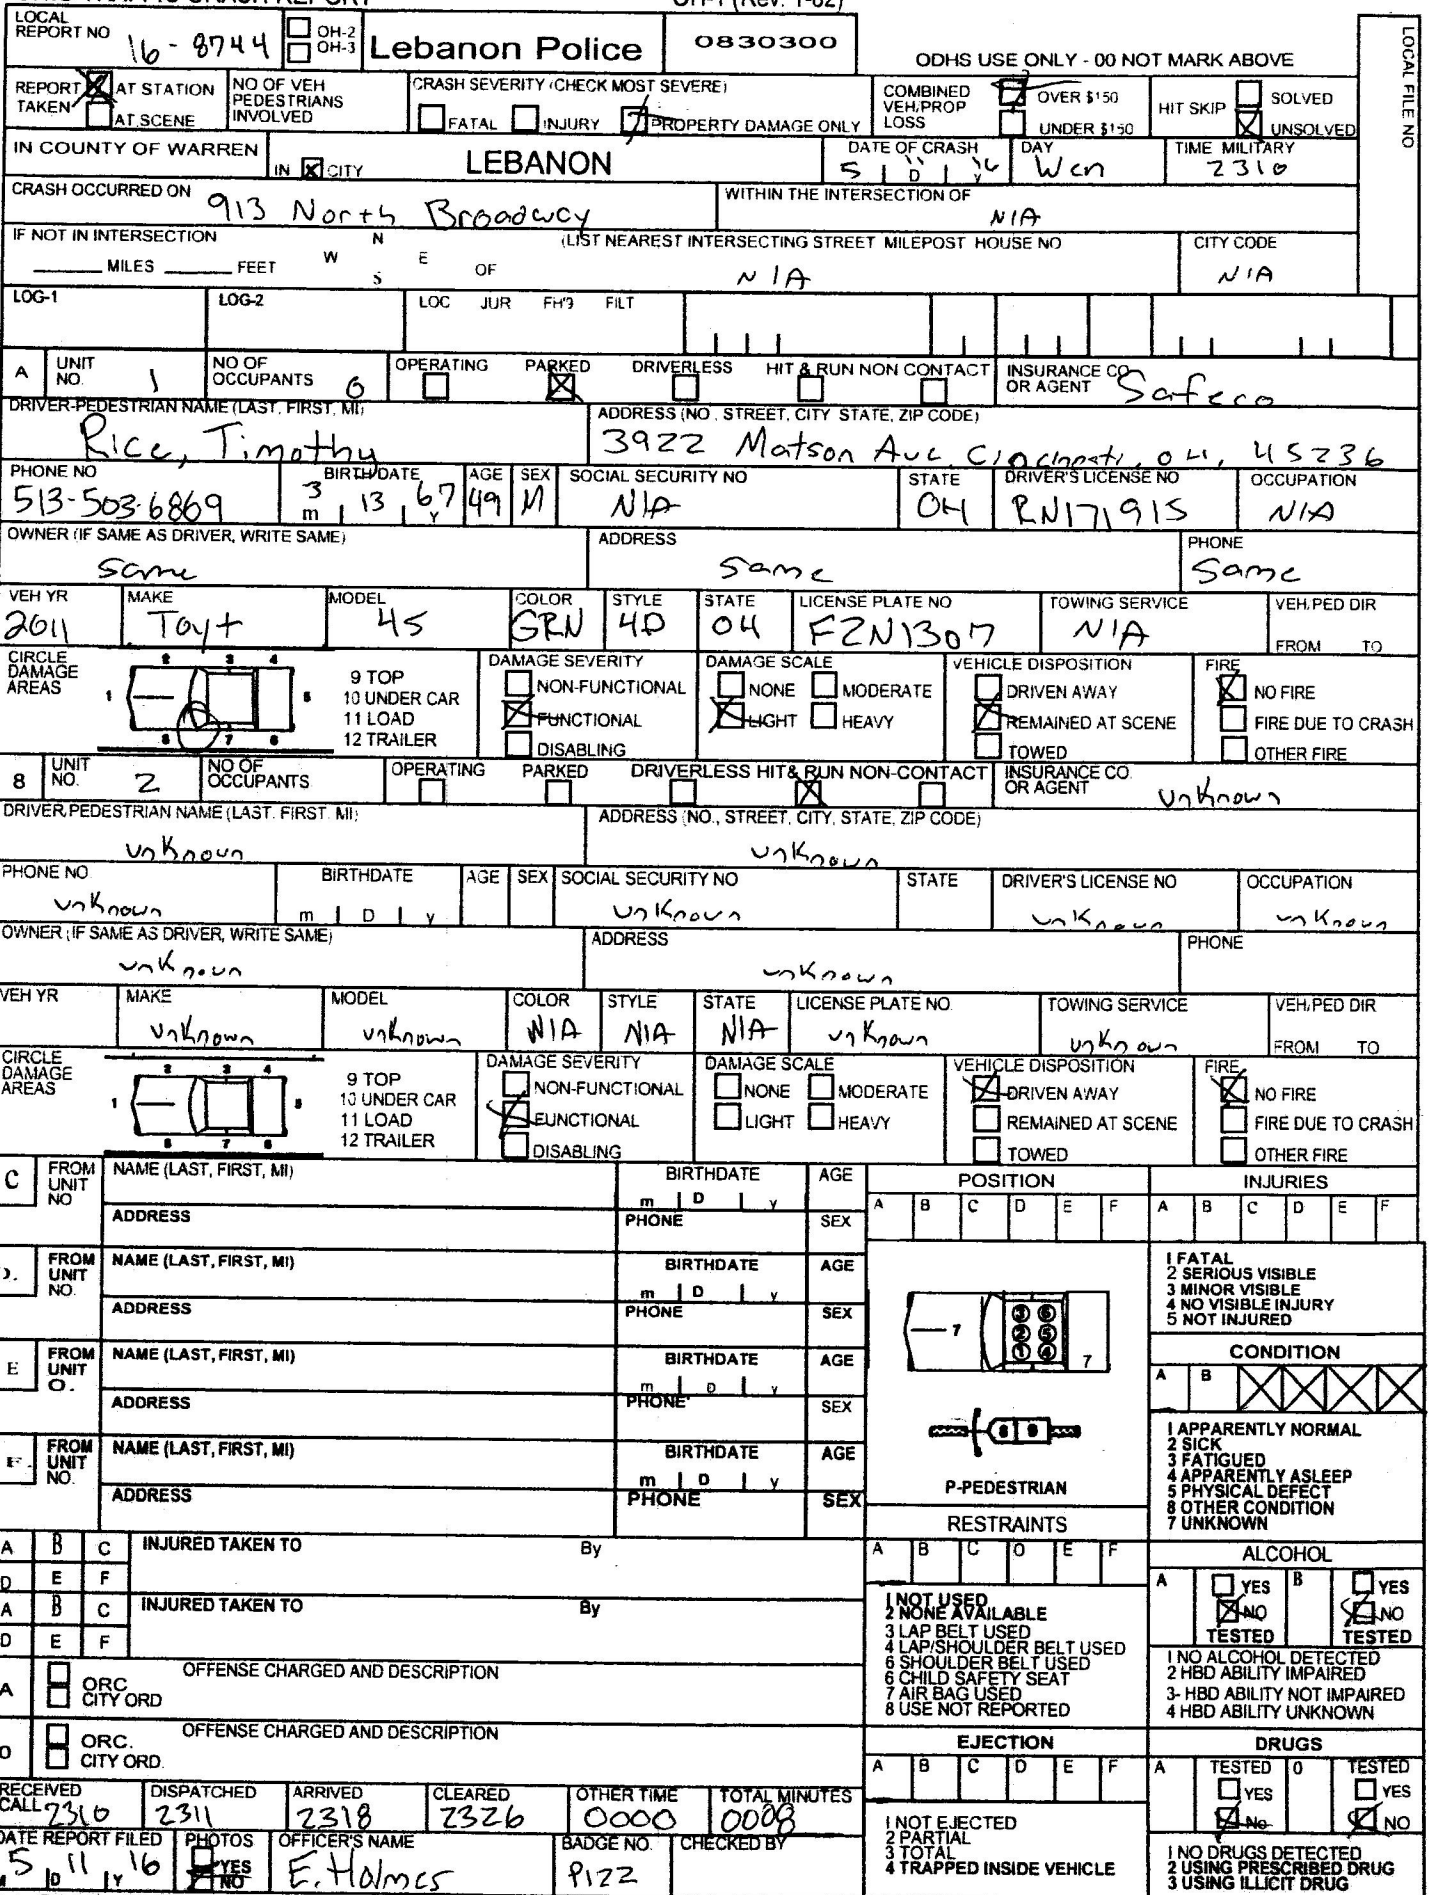 OH-1 (Rev. 1-82)
LOCAL REPORT NO 16-8744 OH-2 OH-3 Lebanon Police 0830300
ODHS USE ONLY - 00 NOT MARK ABOVE
LOCAL FILE NO
REPORT TAKEN AT STATION AT SCENE
NO OF VEH PEDESTRIANS INVOLVED
CRASH SEVERITY (CHECK MOST SEVERE)
FATAL INJURY PROPERTY DAMAGE ONLY
COMBINED VEH/PROP LOSS OVER $150 UNDER $150
HIT SKIP SOLVED UNSOLVED
IN COUNTY OF WARREN IN X CITY LEBANON
DATE OF CRASH 5 11 16 D Y
DAY Wen
TIME MILITARY 2310
CRASH OCCURRED ON 913 North Broadway
WITHIN THE INTERSECTION OF N/A
IF NOT IN INTERSECTION
MILES FEET N W E S OF
(LIST NEAREST INTERSECTING STREET MILEPOST HOUSE NO N/A
CITY CODE N/A
LOG-1 LOG-2 LOC JUR FH'9 FILT
A UNIT NO. 1 NO OF OCCUPANTS 0
OPERATING PARKED DRIVERLESS HIT & RUN NON CONTACT
INSURANCE CO OR AGENT Safeco
DRIVER-PEDESTRIAN NAME (LAST, FIRST, MI) Rice, Timothy
ADDRESS (NO., STREET, CITY STATE, ZIP CODE) 3922 Matson Ave Cincinnati, OH, 45236
PHONE NO 513-503-6869
BIRTHDATE 3 13 67 m Y
AGE 49 SEX M
SOCIAL SECURITY NO N/A
STATE OH
DRIVER'S LICENSE NO RN171915
OCCUPATION N/A
OWNER (IF SAME AS DRIVER, WRITE SAME) Same
ADDRESS Same
PHONE Same
VEH YR 2011
MAKE Toyt
MODEL 4S
COLOR GRN
STYLE 4D
STATE OH
LICENSE PLATE NO FZN1307
TOWING SERVICE N/A
VEH/PED DIR FROM TO
CIRCLE DAMAGE AREAS
1 2 3 4 5 6 7 8
9 TOP
10 UNDER CAR
11 LOAD
12 TRAILER
DAMAGE SEVERITY
NON-FUNCTIONAL
FUNCTIONAL
DISABLING
DAMAGE SCALE
NONE MODERATE
LIGHT HEAVY
VEHICLE DISPOSITION
DRIVEN AWAY
REMAINED AT SCENE
TOWED
FIRE
NO FIRE
FIRE DUE TO CRASH
OTHER FIRE
8 UNIT NO. 2 NO OF OCCUPANTS
OPERATING PARKED DRIVERLESS HIT & RUN NON-CONTACT
INSURANCE CO. OR AGENT Unknown
DRIVER/PEDESTRIAN NAME (LAST. FIRST. MI) Unknown
ADDRESS (NO., STREET, CITY, STATE, ZIP CODE) Unknown
PHONE NO. Unknown
BIRTHDATE m D y
AGE SEX
SOCIAL SECURITY NO Unknown
STATE
DRIVER'S LICENSE NO Unknown
OCCUPATION Unknown
OWNER (IF SAME AS DRIVER, WRITE SAME) Unknown
ADDRESS Unknown
PHONE
VEH YR
MAKE Unknown
MODEL Unknown
COLOR N/A
STYLE N/A
STATE N/A
LICENSE PLATE NO. Unknown
TOWING SERVICE Unknown
VEH/PED DIR FROM TO
CIRCLE DAMAGE AREAS
1 2 3 4 5 6 7 8
9 TOP
10 UNDER CAR
11 LOAD
12 TRAILER
DAMAGE SEVERITY
NON-FUNCTIONAL
FUNCTIONAL
DISABLING
DAMAGE SCALE
NONE MODERATE
LIGHT HEAVY
VEHICLE DISPOSITION
DRIVEN AWAY
REMAINED AT SCENE
TOWED
FIRE
NO FIRE
FIRE DUE TO CRASH
OTHER FIRE
C FROM UNIT NO NAME (LAST, FIRST, MI) BIRTHDATE m D y AGE
ADDRESS PHONE SEX
D. FROM UNIT NO. NAME (LAST, FIRST, MI) BIRTHDATE m D y AGE
ADDRESS PHONE SEX
E FROM UNIT O. NAME (LAST, FIRST, MI) BIRTHDATE m D y AGE
ADDRESS PHONE SEX
F. FROM UNIT NO. NAME (LAST, FIRST, MI) BIRTHDATE m D y AGE
ADDRESS PHONE SEX
POSITION
A B C D E F
7 3 6 2 5 1 4 7
8 9
P-PEDESTRIAN
INJURIES
A B C D E F
1 FATAL
2 SERIOUS VISIBLE
3 MINOR VISIBLE
4 NO VISIBLE INJURY
5 NOT INJURED
CONDITION
A B
1 APPARENTLY NORMAL
2 SICK
3 FATIGUED
4 APPARENTLY ASLEEP
5 PHYSICAL DEFECT
8 OTHER CONDITION
7 UNKNOWN
A B C INJURED TAKEN TO By
D E F
A B C INJURED TAKEN TO By
D E F
A ORC CITY ORD OFFENSE CHARGED AND DESCRIPTION
O ORC. CITY ORD. OFFENSE CHARGED AND DESCRIPTION
RESTRAINTS
A B C O E F
1 NOT USED
2 NONE AVAILABLE
3 LAP BELT USED
4 LAP/SHOULDER BELT USED
6 SHOULDER BELT USED
6 CHILD SAFETY SEAT
7 AIR BAG USED
8 USE NOT REPORTED
ALCOHOL
A YES NO TESTED B YES NO TESTED
1 NO ALCOHOL DETECTED
2 HBD ABILITY IMPAIRED
3- HBD ABILITY NOT IMPAIRED
4 HBD ABILITY UNKNOWN
EJECTION
A B C D E F
1 NOT EJECTED
2 PARTIAL
3 TOTAL
4 TRAPPED INSIDE VEHICLE
DRUGS
A TESTED YES No 0 TESTED YES NO
1 NO DRUGS DETECTED
2 USING PRESCRIBED DRUG
3 USING ILLICIT DRUG
RECEIVED CALL 2310
DISPATCHED 2311
ARRIVED 2318
CLEARED 2326
OTHER TIME 0000
TOTAL MINUTES 0008
DATE REPORT FILED 5 11 16 D Y
PHOTOS YES NO
OFFICER'S NAME E. Holmes
BADGE NO. P122
CHECKED BY